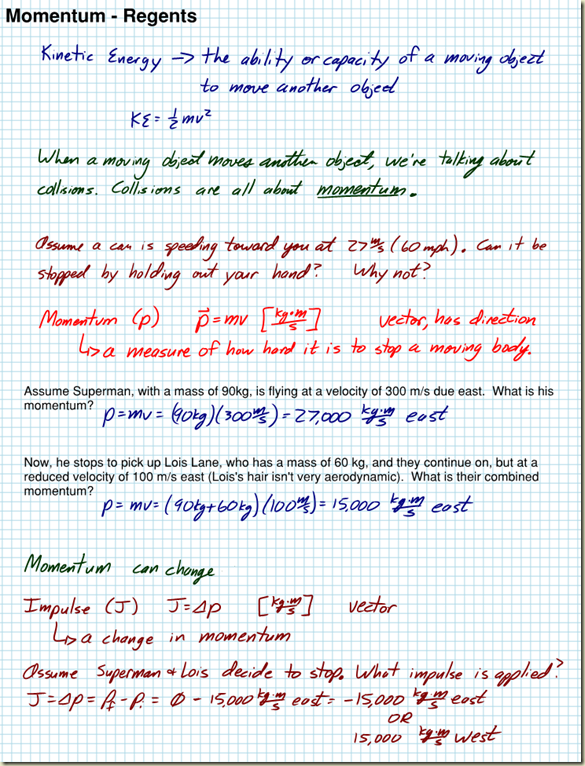 Momentum - Regents
Kinetic Energy -> the ability or capacity of a moving object
to move another object
KE = ½mv²
When a moving object moves another object, we're talking about
collisions. Collisions are all about momentum.
Assume a car is speeding toward you at 27 m/s (60 mph). Can it be
stopped by holding out your hand? Why not?
Momentum (p) p⃗ = mv [kg·m/s] vector, has direction
↳ a measure of how hard it is to stop a moving body.
Assume Superman, with a mass of 90kg, is flying at a velocity of 300 m/s due east. What is his
momentum?
p = mv = (90kg)(300 m/s) = 27,000 kg·m/s east
Now, he stops to pick up Lois Lane, who has a mass of 60 kg, and they continue on, but at a
reduced velocity of 100 m/s east (Lois's hair isn't very aerodynamic). What is their combined
momentum?
p = mv = (90kg+60kg)(100 m/s) = 15,000 kg·m/s east
Momentum can change
Impulse (J) J = Δp [kg·m/s] vector
↳ a change in momentum
Assume Superman & Lois decide to stop. What impulse is applied?
J = Δp = Pf - Pi = 0 - 15,000 kg·m/s east = -15,000 kg·m/s east
OR
15,000 kg·m/s west